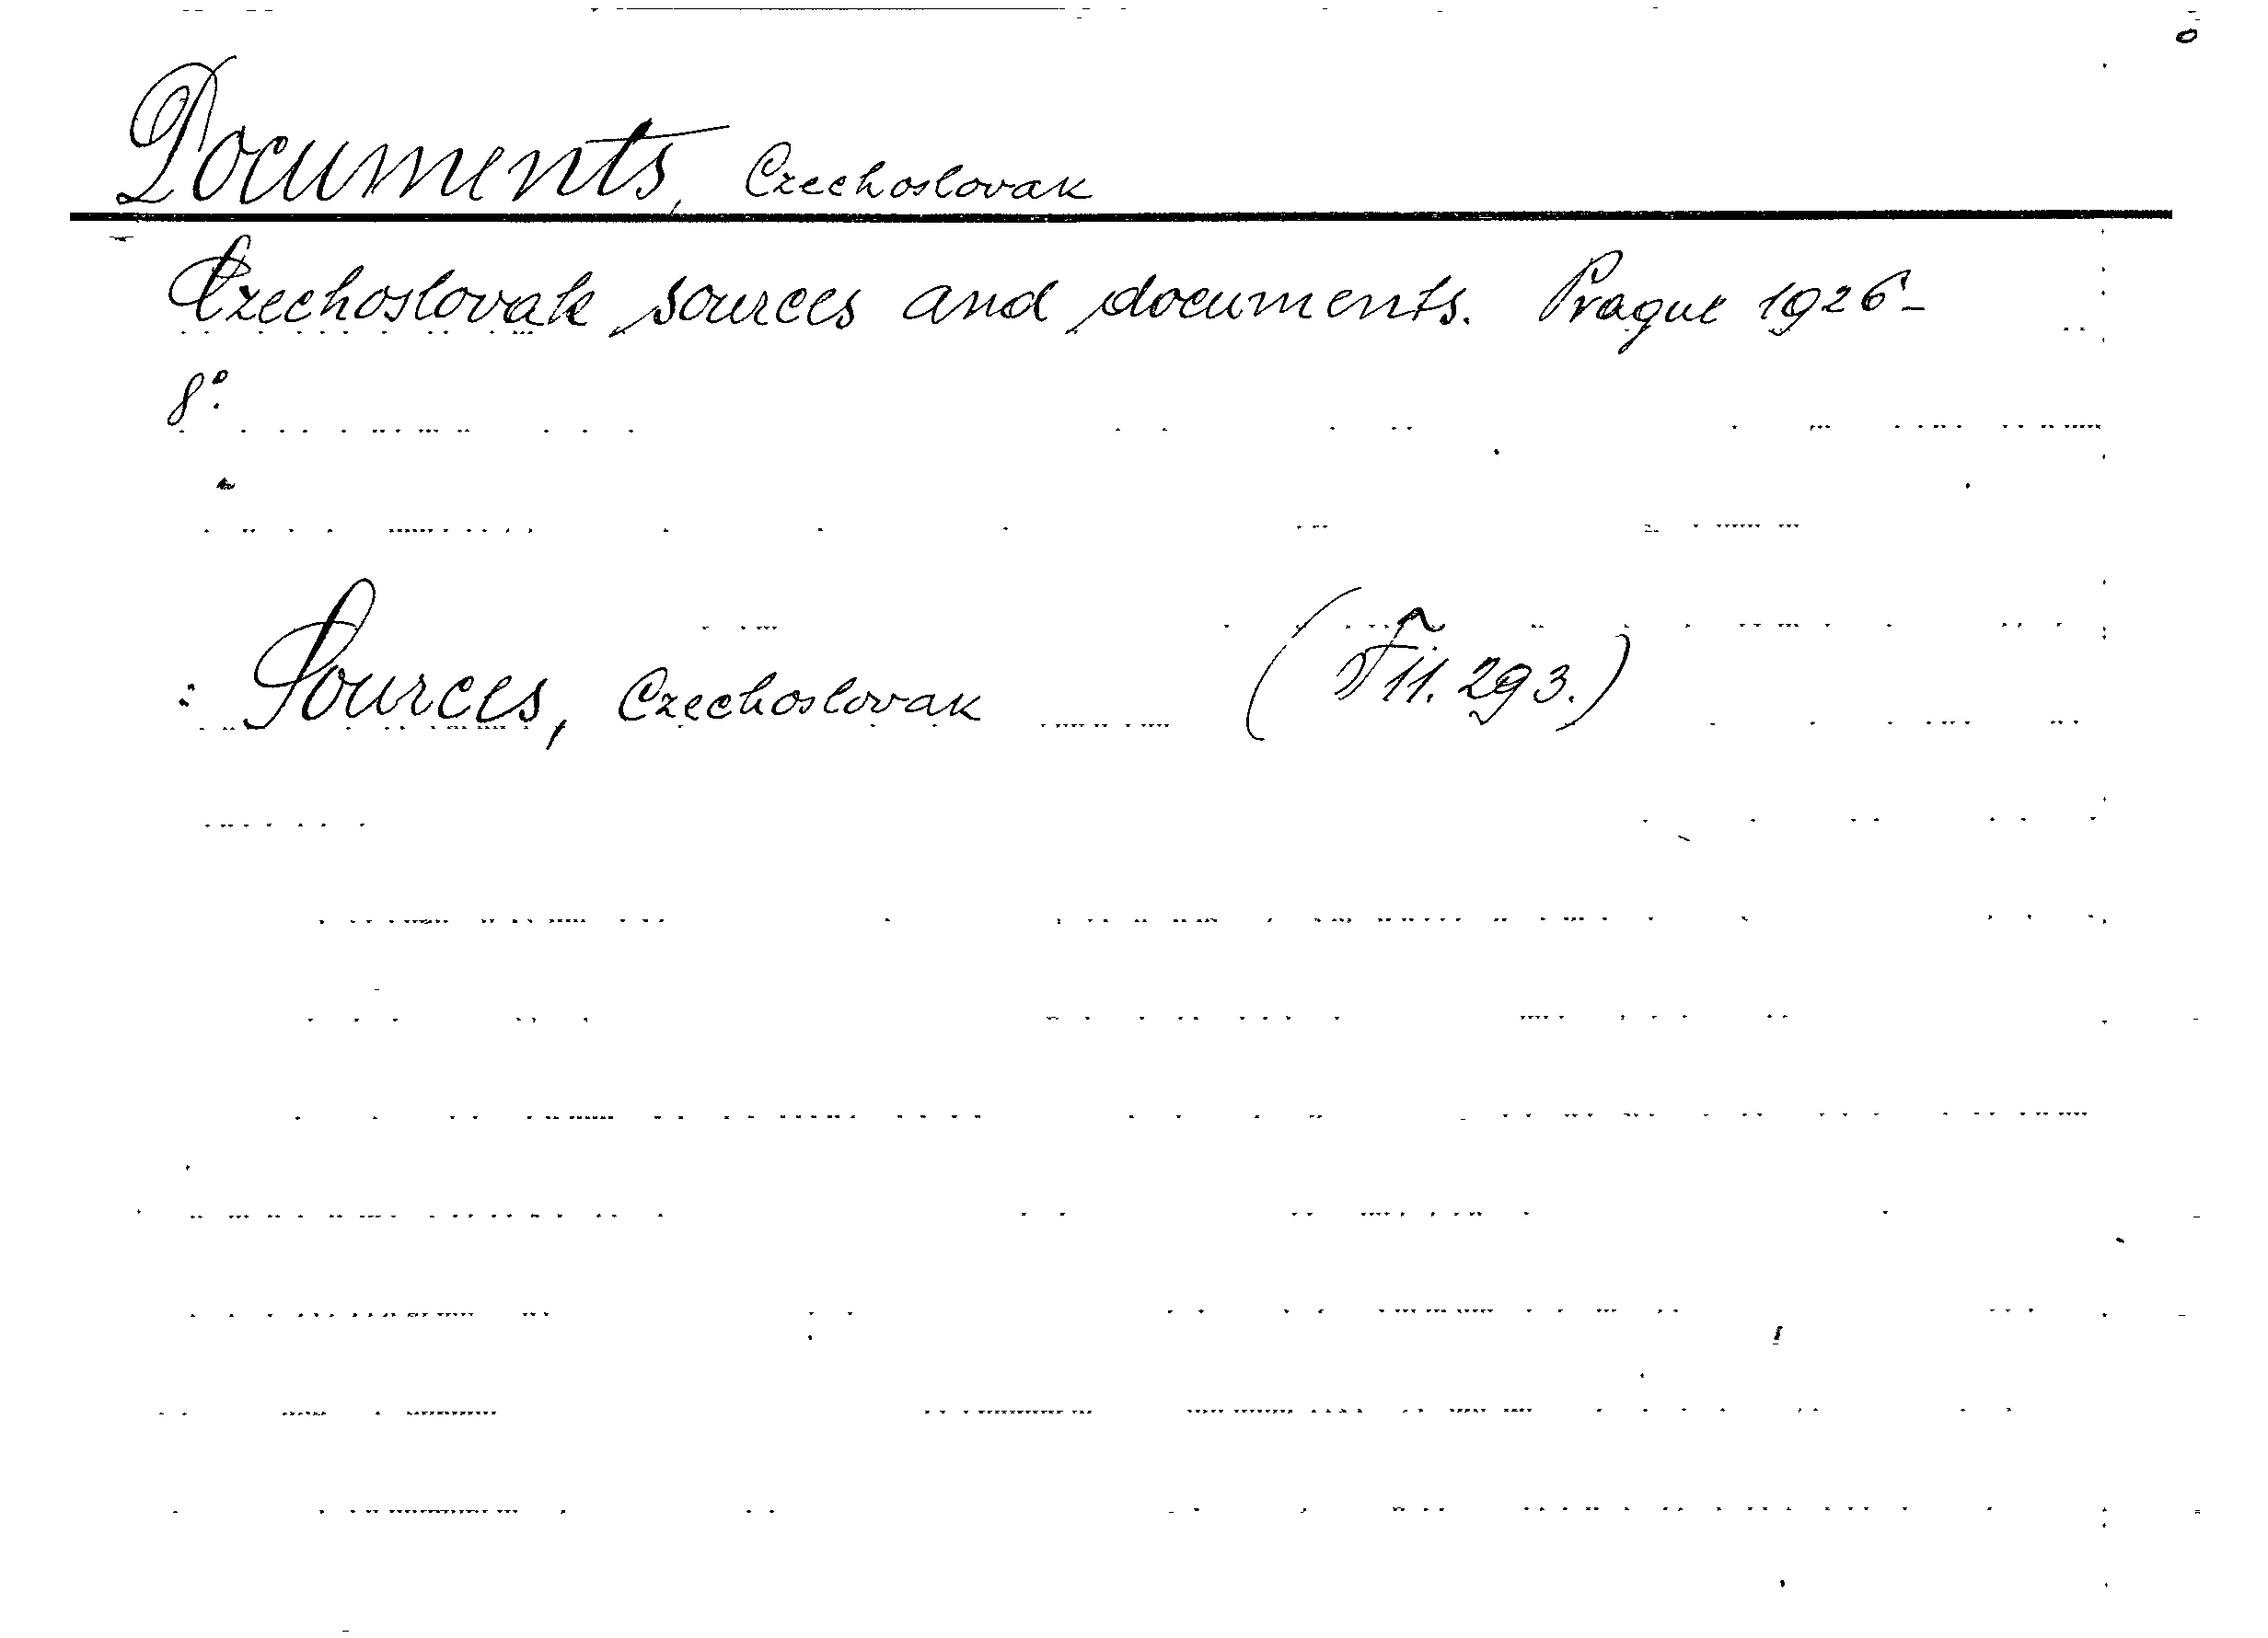 Documents, Czechoslovak
Czechoslovak sources and documents. Prague 1926-
8°.
: Sources, Czechoslovak (F 11. 293.)